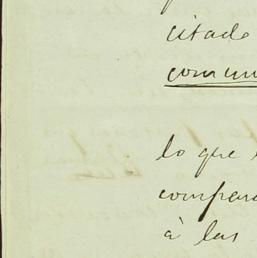 citado
comun
lo que
compar
à las